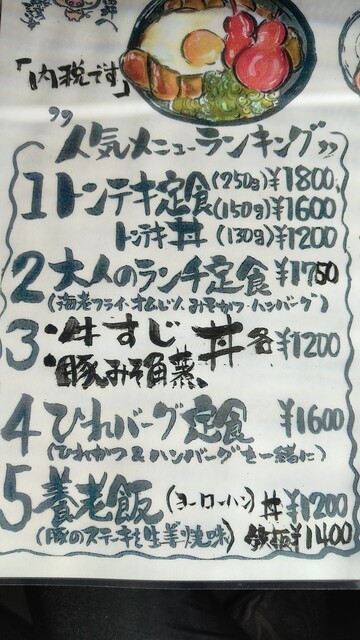 「内税です」
"人気メニューランキング"
1 トンテキ定食 (250g) ¥1800
(150g) ¥1600
トンテキ丼 (130g) ¥1200
2 大人のランチ定食 ¥1750
(海老フライ・オムレツ・みそかつ・ハンバーグ)
3 ・牛すじ丼 各¥1200
・豚みそ角煮
4 ひれバーグ定食 ¥1600
(ひれかつ&ハンバーグを一緒に)
5 養老飯 (ヨーローハン) 丼 ¥1200
(豚のステーキを生姜焼味) 鉄板¥1400